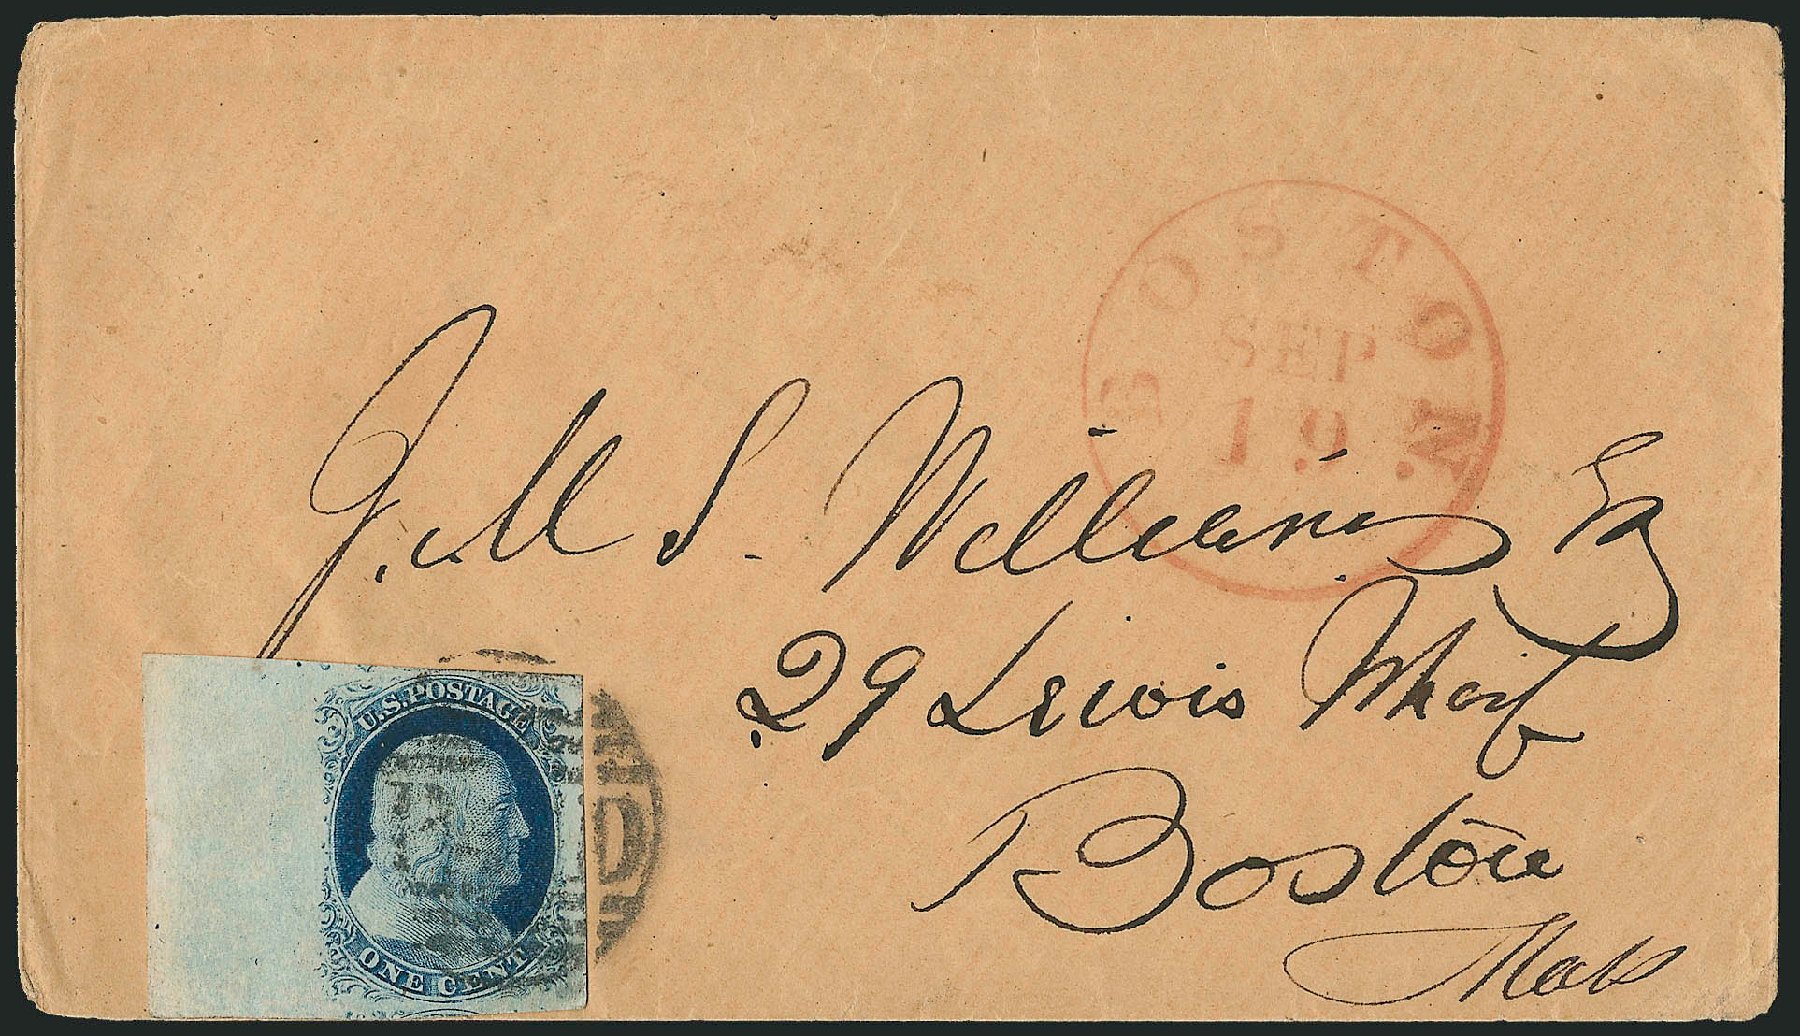 BOSTON
SEP
19.
J. M S. Williams Esq
29 Lewis Wharf
Boston
Mass
U.S. POSTAGE
ONE CENT